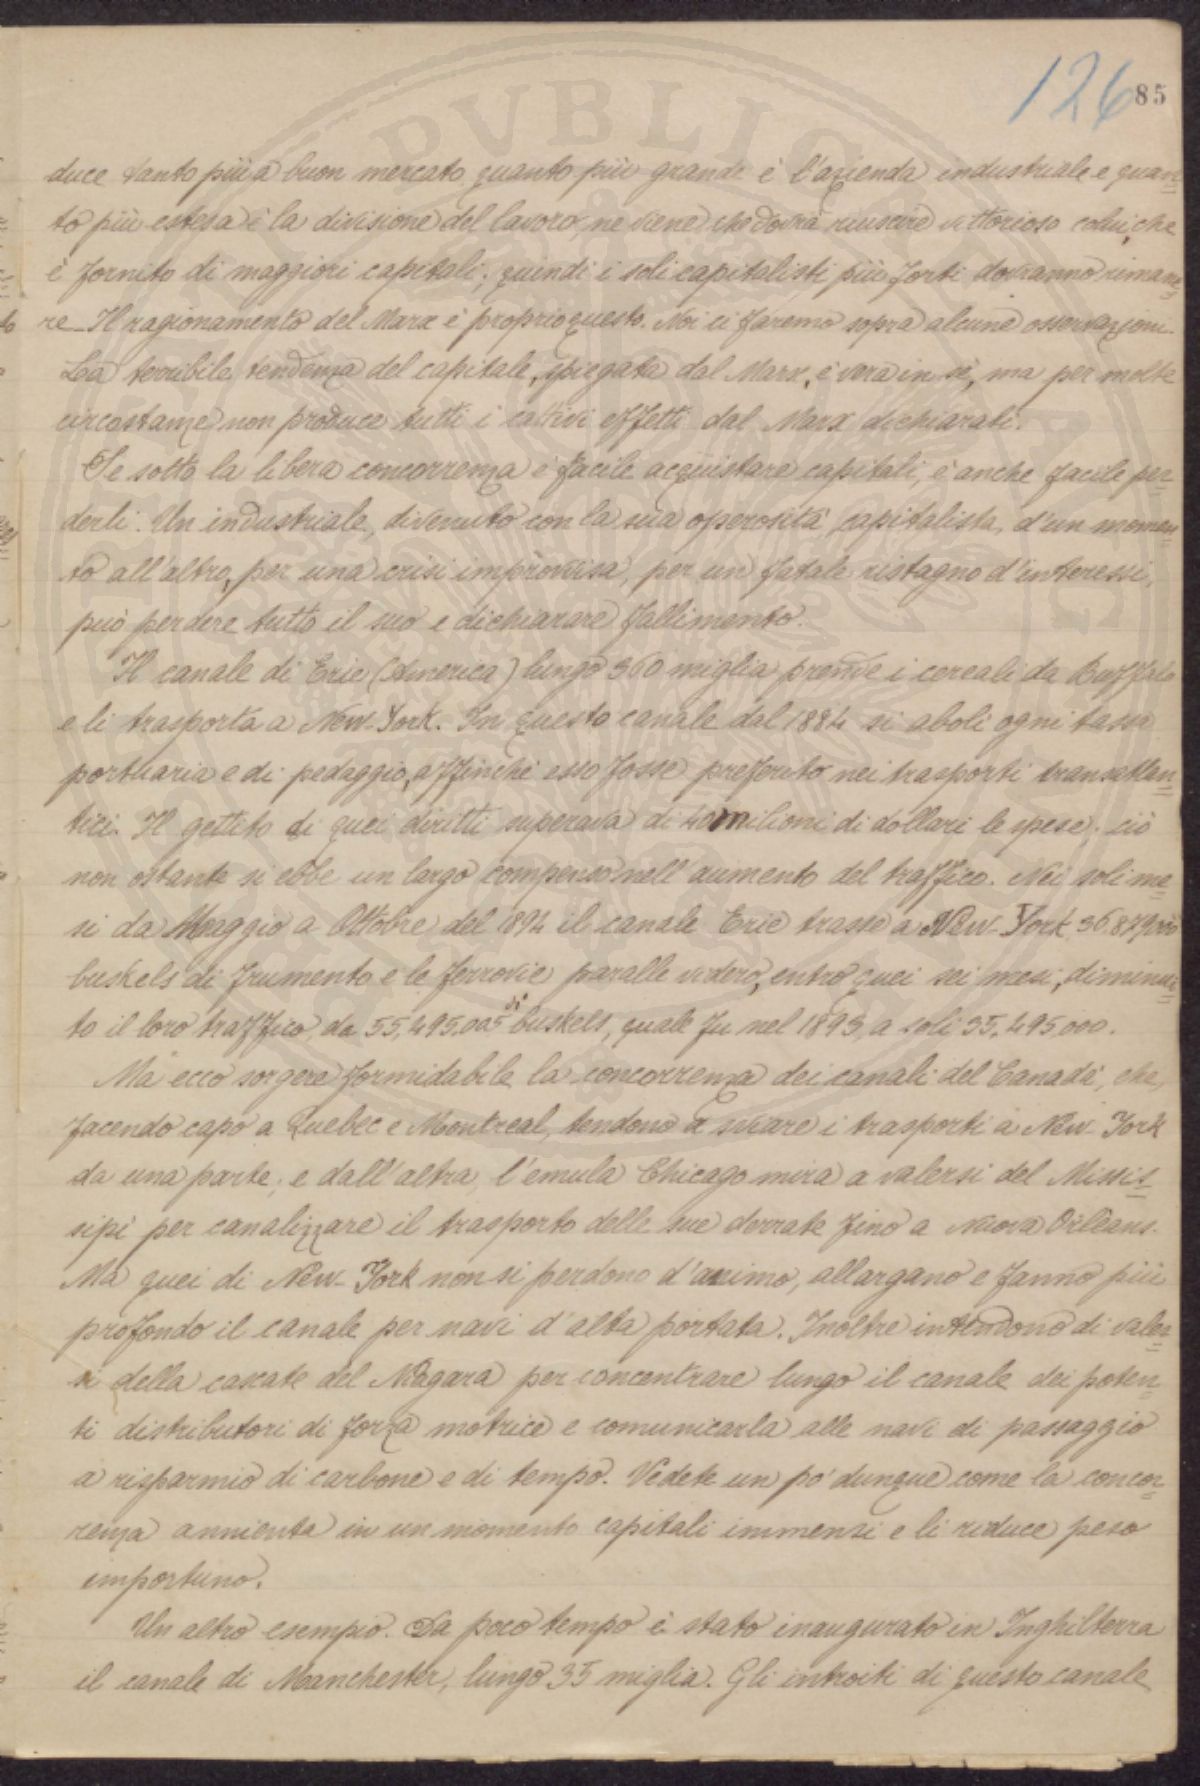 126 85
duce tanto più a buon mercato quanto più grande è l'azienda industriale e quan=
to più estesa è la divisione del lavoro, ne viene che dovrà riuscire vittorioso colui, che
è fornito di maggiori capitali; quindi i soli capitalisti più forti dovranno rimane=
re. Il ragionamento del Marx è proprio questo. Noi ci faremo sopra alcune osservazioni.
La terribile tendenza del capitale, spiegata dal Marx, è vera in sè, ma per molte
circostanze non produce tutti i cattivi effetti dal Marx dichiarati.
Se sotto la libera concorrenza è facile acquistare capitali, è anche facile per=
derli. Un industriale, divenuto con la sua operosità capitalista, d'un momen=
to all'altro, per una crisi improvvisa, per un fatale ristagno d'interessi,
può perdere tutto il suo e dichiarare fallimento.
Il canale di Erie (America) lungo 360 miglia prende i cereali da Buffalo
e li trasporta a New-York. In questo canale dal 1884 si abolì ogni tassa
portuaria e di pedaggio, affinchè esso fosse preferito nei trasporti transatlan=
tici. Il gettito di quei diritti superava di 40 milioni di dollari le spese; ciò
non ostante si ebbe un largo compenso nell'aumento del traffico. Nei soli me=
si da Maggio a Ottobre del 1894 il canale Erie trasse a New-York 36,879,000
buskels di frumento e le ferrovie paralle videro, entro quei sei mesi, diminui=
to il loro traffico, da 55,495,005 di buskels, quale fu nel 1893, a soli 35,495,000.
Ma ecco sorgere formidabile la concorrenza dei canali del Canadà, che,
facendo capo a Quebec e Montreal, tendono a sviare i trasporti a New-York
da una parte; e dall'altra, l'emula Chicago mira a valersi del Missis=
sipì per canalizzare il trasporto delle sue derrate fino a Nuova Orlèans.
Ma quei di New-York non si perdono d'animo, allargano e fanno più
profondo il canale per navi d'alta portata. Inoltre intendono di valer=
si della cascate del Niagara per concentrare lungo il canale dei poten=
ti distributori di forza motrice e comunicarla alle navi di passaggio
a risparmio di carbone e di tempo. Vedete un po' dunque come la concor=
renza annienta in un momento capitali immensi e li riduce peso
importuno.
Un altro esempio. Da poco tempo è stato inaugurato in Inghilterra
il canale di Manchester, lungo 35 miglia. Gli introiti di questo canale